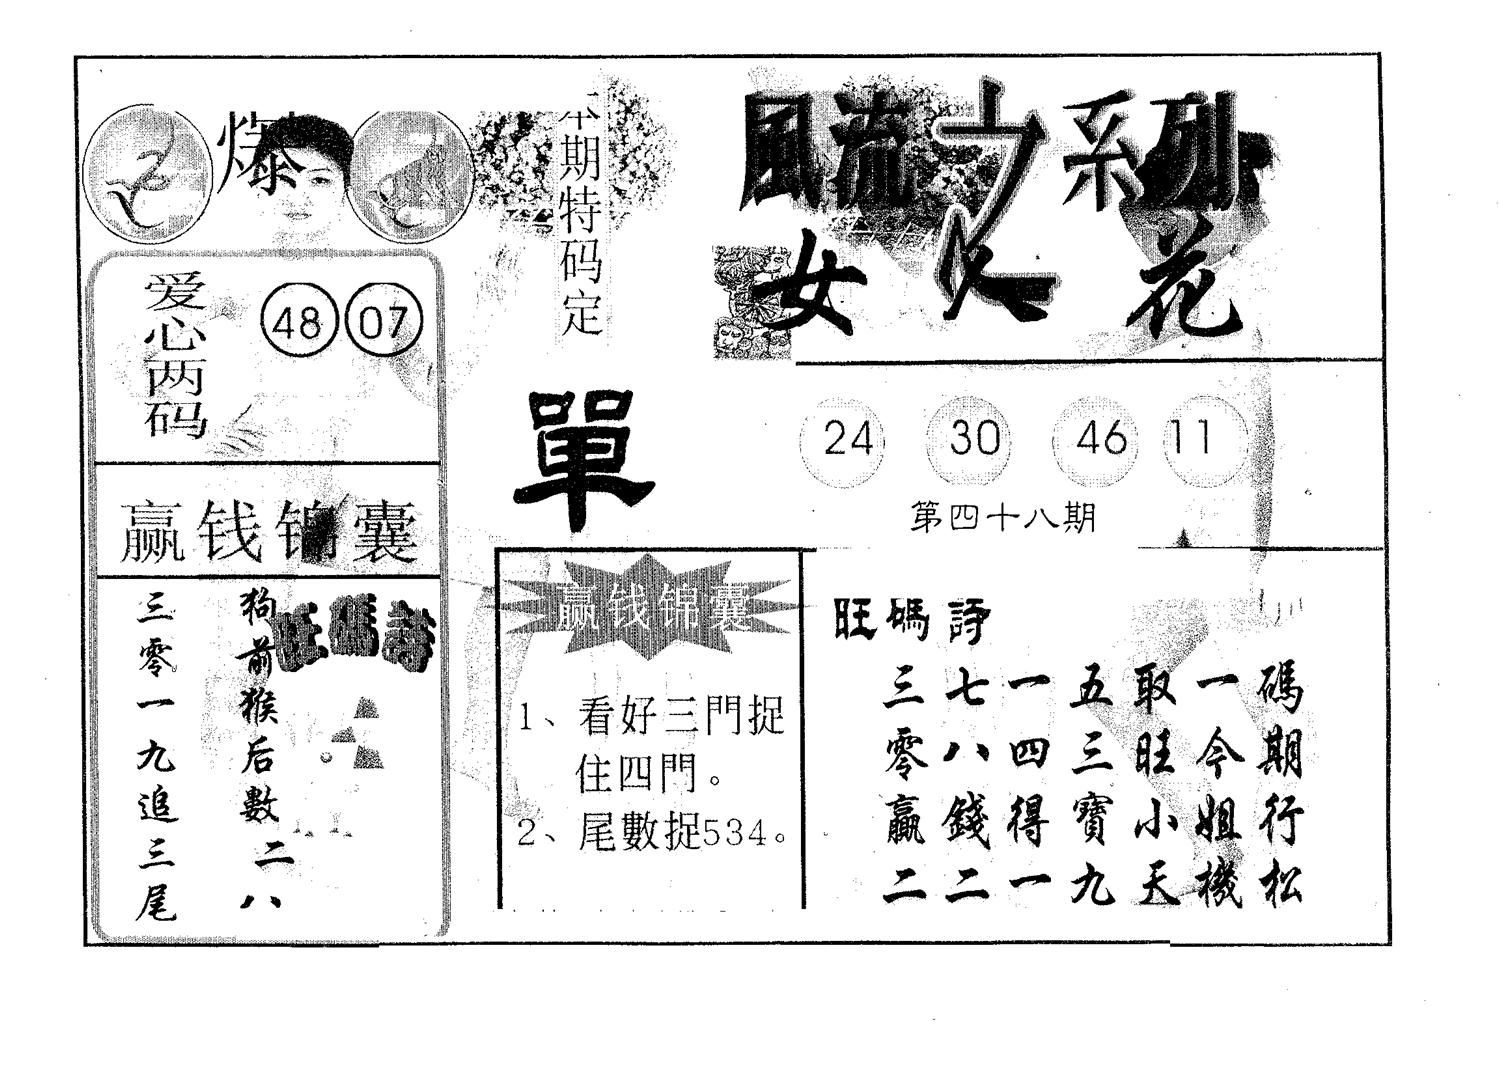 爆
本期特码定
單
風流之系列
女人花
爱心两码
48 07
24 30 46 11
第四十八期
赢钱锦囊
旺碼詩
狗前猴后數二八
三零一九追三尾
赢钱锦囊
1、看好三門捉
住四門。
2、尾數捉534。
旺碼詩
三七一五取一碼
零八四三旺今期
贏錢得寶小姐行
二二一九天機松